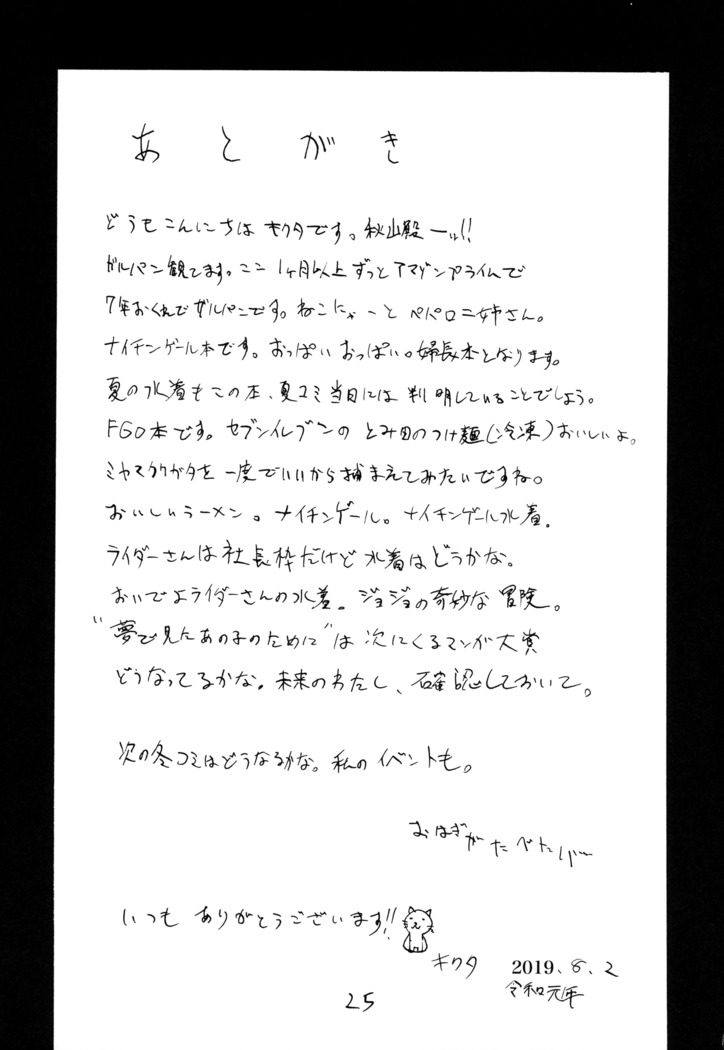 あとがき
どうもこんにちは キクタです。秋山殿ーッ!!
ガルパン観てます。ここ 1ヶ月以上ずっとアマゾンプライムで
7年おくれでガルパンです。ねこにゃーと ペパロニ姉さん。
ナイチンゲール本です。おっぱい おっぱい。婦長本となります。
夏の水着もこの本、夏コミ当日には 判明していることでしょう。
FGO本です。セブンイレブンの とみ田のつけ麺(冷凍)おいしいよ。
ミヤマクワガタを 一度でいいから捕まえてみたいですね。
おいしいラーメン。ナイチンゲール。ナイチンゲール水着。
ライダーさんは 社長枠だけど 水着はどうかな。
おいでよライダーさんの水着。ジョジョの奇妙な 冒険。
"夢で見たあの子のために"は 次にくるマンガ大賞
どうなってるかな。未来のわたし、確認しておいて。
次の冬コミはどうなるかな。私の イベントも。
おはぎが たべたい
いつも ありがとうございます!!
キクタ 2019.8.2
令和元年
25